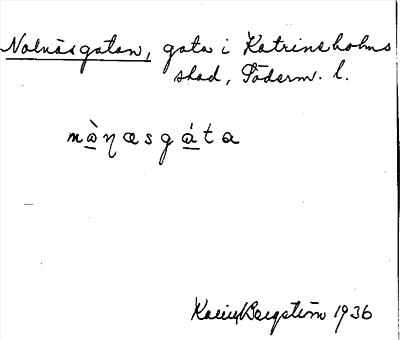 Nalnäsgatan, gata i Katrineholms
stad, Söderm. l.
Karin Bergström 1936